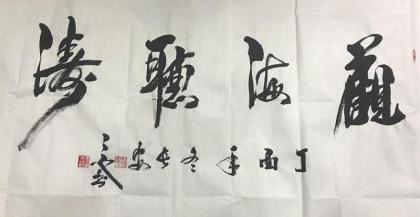 觀海聽濤
丁酉年冬長安